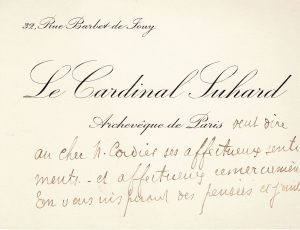 32, Rue Barbet de Jouy
Le Cardinal Suhard
Archevêque de Paris veut dire
au cher M. Cordier ses affectueux senti
ments - et affectueux remerciements
En vous inspirant des pensées et